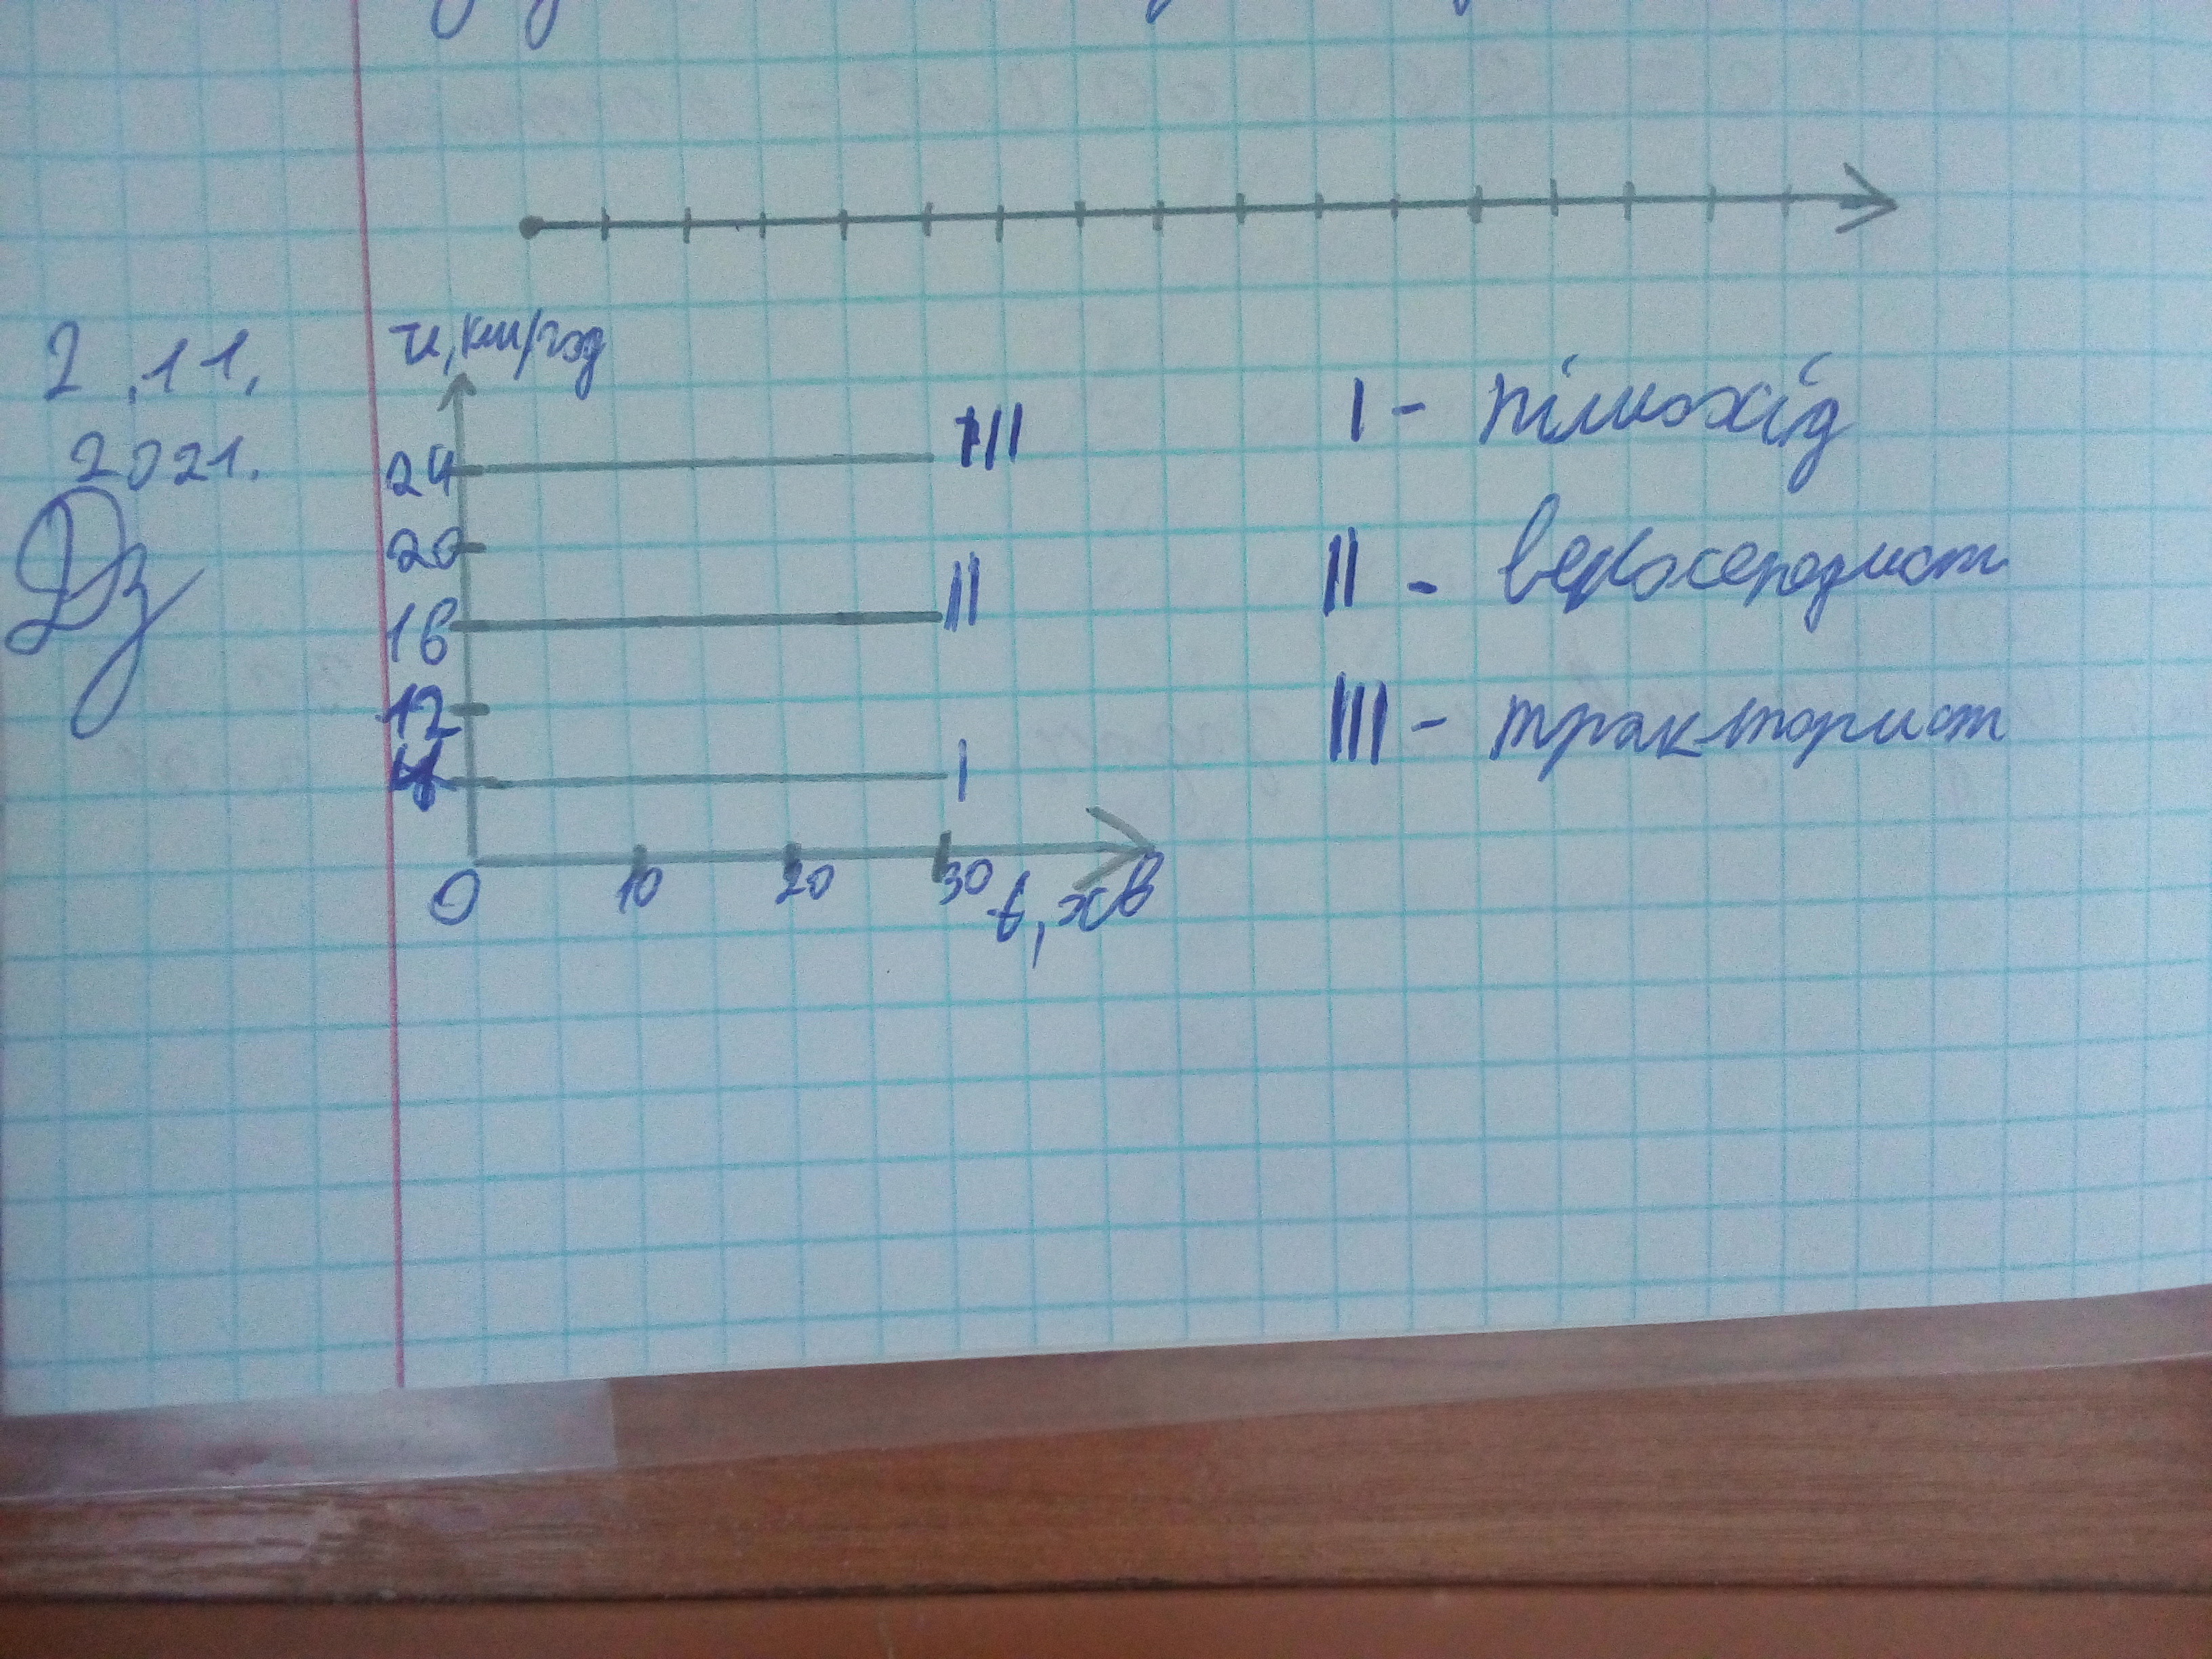 2.11.
2021.
Дз
v, км/год
24
20
16
12
III
II
I
0 10 20 30 t, хв
I - пішохід
II - велосепедист
III - тракторист